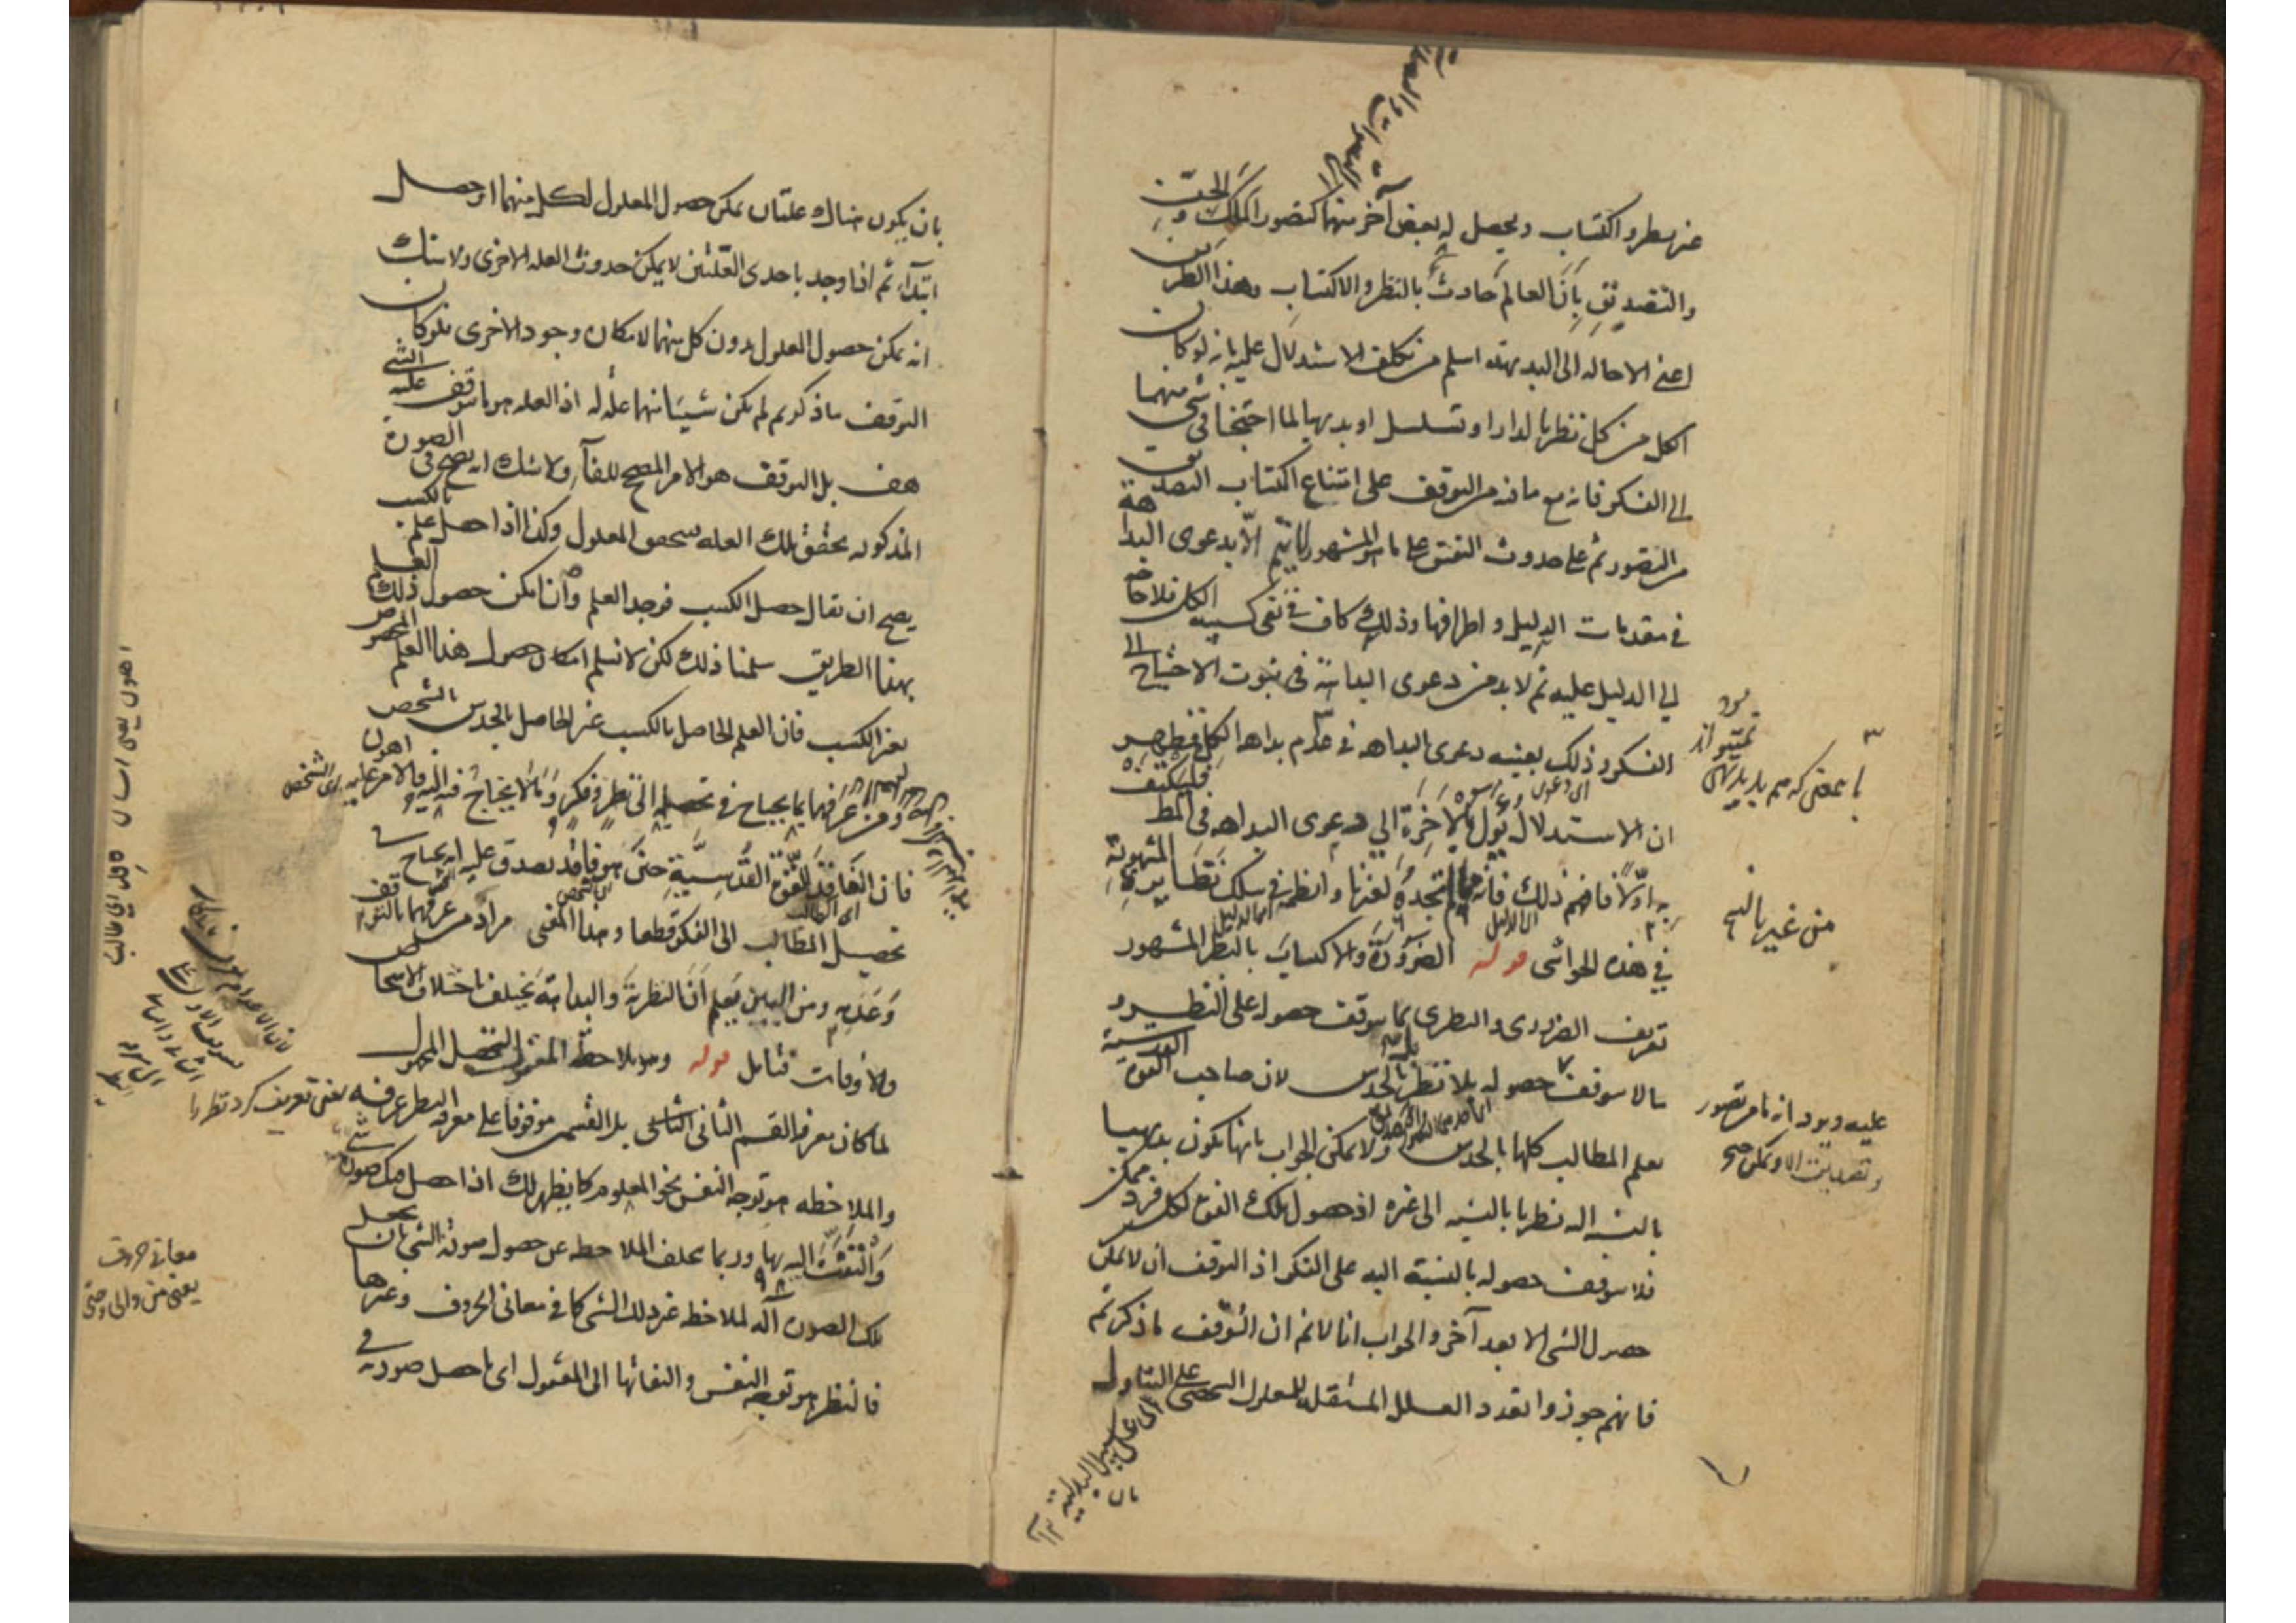 غير نظر واكتساب ويحصل له بعض آخر منهما كتصور الملك والجن
والتصديق بأن العالم حادث بالنظر والاكتساب وهذا الطريق
اعنى الاحالة الى البديهة اسلم من تكلف الاستدلال عليه بانه لو كان
الكل من كل نظريا لدار او تسلسل او بديهيا لما احتجنا فى شئ منهما
الى الفكر فانه مع ما فيه من التوقف على امتناع اكتساب التصديق
من التصور ثم على حدوث النفس على ما هو المشهور لا يتم الا بدعوى البداهة
فى مقدمات الدليل واطرافها وذلك كاف فى نفى كسبية الكل فلا حاجة
الى الدليل عليه ثم لابد من دعوى البداهة فى ثبوت الاحتياج الى
الفكر وذلك بعينه دعوى البداهة فى عدم بداهة الكل فظهر
ان الاستدلال يؤل بالآخرة الى دعوى البداهة فى المط فليكتف
به اولا فافهم ذلك فانه مما لم تجده لغيرنا وانظمه فى سلك نظايره المثبوتة
فى هذه الحواشى قوله الضرورة والاكتساب بالنظر المشهور
تعريف الضرورى والنظرى بما يتوقف حصوله على النظر و
ما لا يتوقف حصوله بلا نظر بالحدس لان صاحب القوة القدسية
يعلم المطالب كلها بالحدس ولا يمكن الجواب بانها تكون بديهيا
بالنسبة اليه نظريا بالنسبة الى غيره اذ حصول تلك القوة لكل فرد ممكن
فلا يتوقف حصوله بالنسبة اليه على الفكر اذ التوقف ان لا يمكن
حصول الشئ الا بعد آخر والجواب انا لانم ان التوقف ما ذكرتم
فانهم جوزوا تعدد العلل المستقلة للمعلول الشخصى على التبادل
اى على سبيل البدلية ١٢
بان
من غير بالنسبة
بان يكون هناك علتان يمكن حصول المعلول لكل منهما او حصل
ابتداء ثم اذا وجد باحدى العلتين لا يمكن حدوث العلة الاخرى ولا شك
انه يمكن حصول المعلول بدون كل منهما لامكان وجود الاخرى فلو كان
التوقف ما ذكرتم لم يكن شيئا منهما علة له اذ العلة هو ما يتوقف عليه الشئ
هف بل التوقف هو الامر المصحح للفاء ولا شك انه يصح فى الصورة
المذكورة تحقق تلك العلة فتحقق المعلول وكذا اذا حصل علم بالكسب
يصح ان يقال حصل الكسب فوجد العلم وان امكن حصول ذلك العلم
بهذا الطريق سلمنا ذلك لكن لا نسلم امكان حصول هذا العلم
بغير الكسب فان العلم الحاصل بالكسب غير الحاصل بالحدس الشخص
ومن عرفهما بما يحتاج فى تحصيله الى نظر وفكر وما لا يحتاج فيه اليه فالامر عليه اهون
فان الفاقد للقوة القدسية حتى هو فاقد يصدق عليه انه يحتاج فى
تحصيل المطالب الى الفكر قطعا وهذا المعنى مراد من عرفهما بالتوقف
وعدمه ومن البين يعلم ان النظرية والبداهة يختلف باختلاف الاشخاص
والاوقات فتامل قوله وهو ملاحظة المعقول لتحصيل المجهول
لما كان معرفة القسم الثانى بل القسمين موقوفا على معرفة النظر عرفه
والملاحظة هو توجه النفس نحو المعلوم كما يظهر لك اذا حصل فيك صورة شئ
والتفت اليه بها وربما يخلف الملاحظة عن حصول صورة الشئ بان يجعل
تلك الصورة آلة لملاحظة غير ذلك الشئ كما فى معانى الحروف وغيرها
فالنظر هو توجه النفس والتفاتها الى المعقول اى ما حصل صورته فى
يعنى تعريف كرد نظر را
معانى حروف
يعنى من والى وحتى